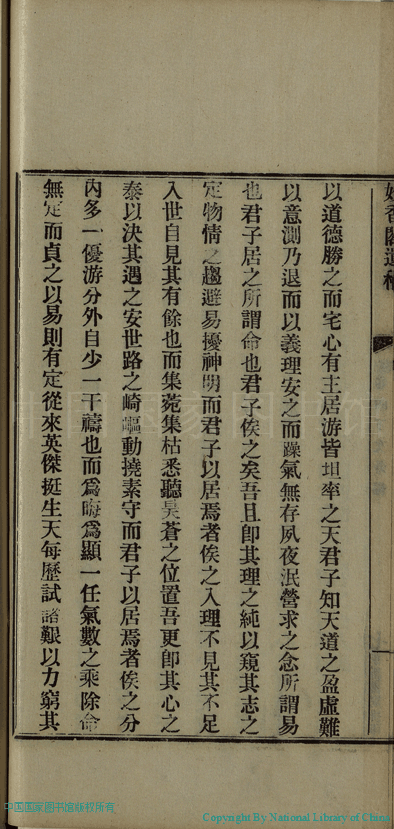 以道德勝之而宅心有主居游皆坦率之天君子知天道之盈虛難
以意測乃退而以義理安之而躁氣無存夙夜泯營求之念所謂易
也君子居之所謂命也君子俟之矣吾且卽其理之純以窺其志之
定物情之趨避易擾神明而君子以居焉者俟之入理不見其不足
入世自見其有餘也而集菀集枯悉聽昊蒼之位置吾更卽其心之
泰以決其遇之安世路之崎嶇動撓素守而君子以居焉者俟之分
內多一優游分外自少一干禱也而爲晦爲顯一任氣數之乘除命
無定而貞之以易則有定從來英傑挺生天每歷試諸艱以力窮其
中国国家图书馆版权所有
Copyright By National Library of China